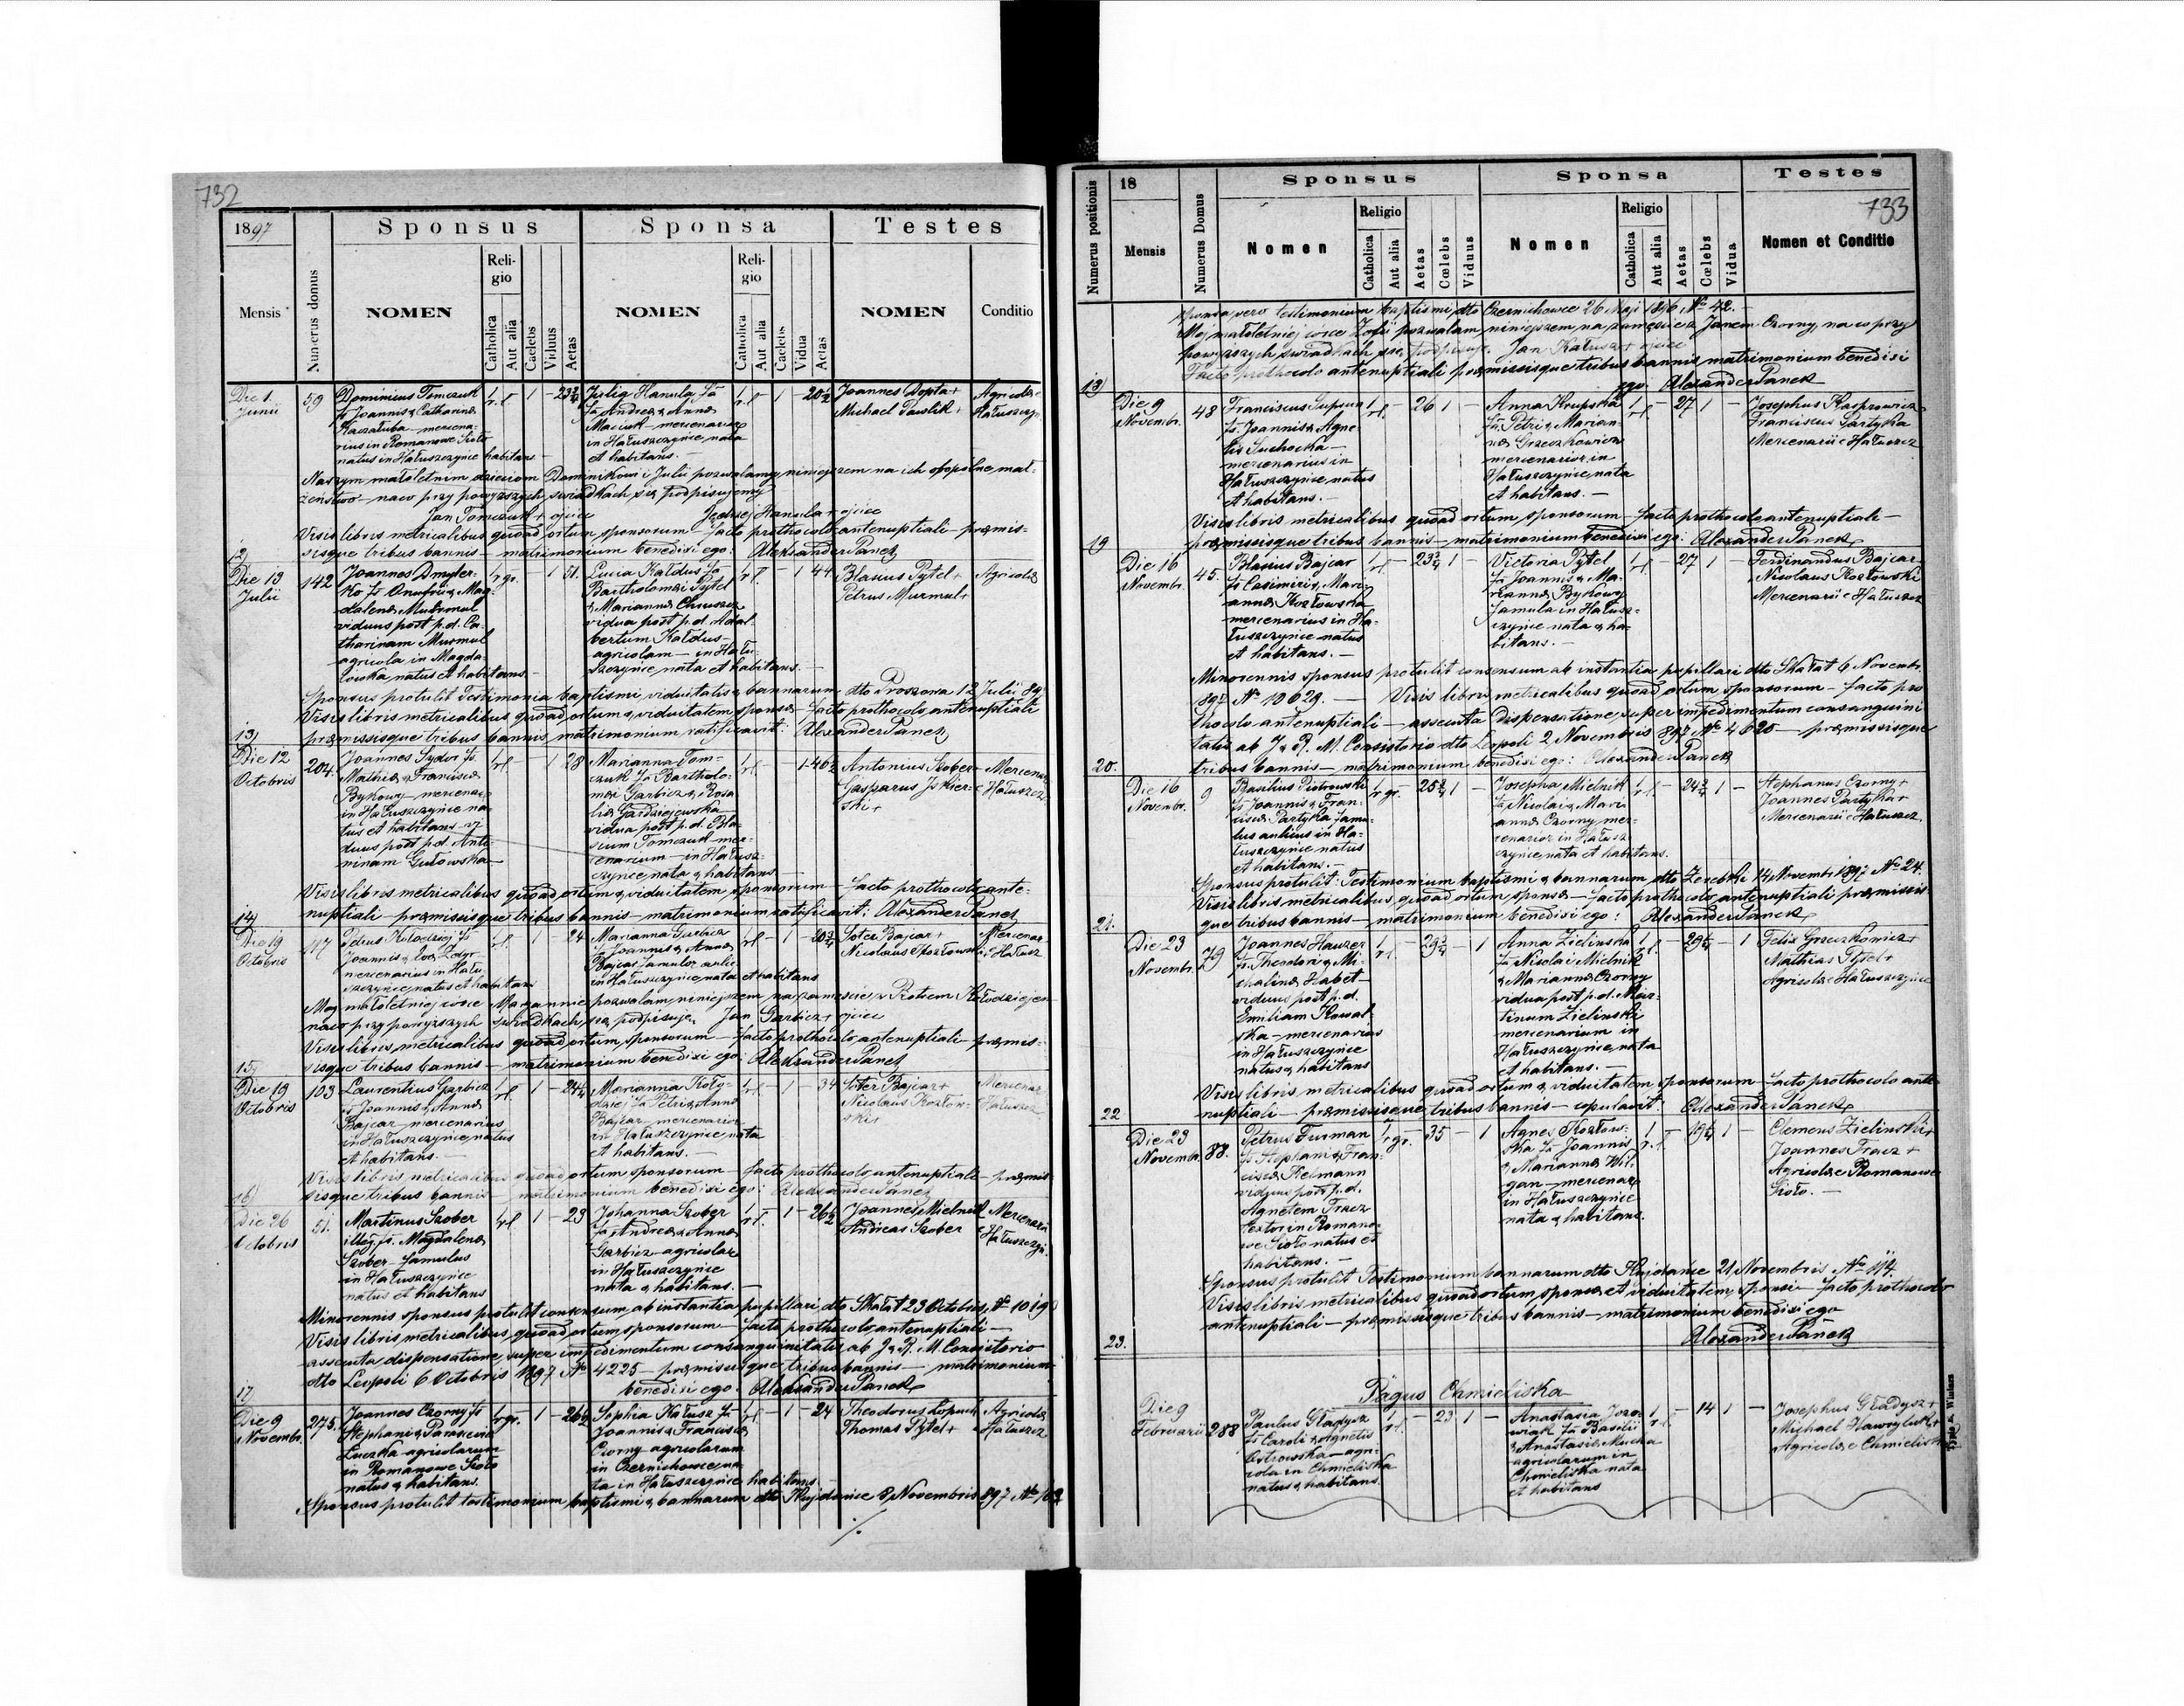 732
1897
Sponsus
Sponsa
Testes
Mensis
Numerus domus
NOMEN
Religio
Catholica
Aut alia
Caelebs
Viduus
Aetas
NOMEN
Religio
Catholica
Aut alia
Caelebs
Vidua
Aetas
NOMEN
Conditio
Die 1 Junii
59
Dominicus Tomczuk
fs Joannis & Catharinae
Kaczałuba mercena-
rius in Romanowe Sioło
natus in Hałuszczyńce habitans
1 rl - 1 - 23¾
Julia Hanula fa
Andreae & Annae
Maciuk mercenarior
in Hałuszczyńce nata
et habitans. -
1 rl - 1 - 20½
Joannes Dopta +
Michael Pawlik +
Agricolae
Hałuszczyn
Naszym małoletnim dzieciom Dominikowi i Julii pozwalamy niniejszem na ich wspólne mał-
żeństwo naco przy powyższych świadkach się podpisujemy
Jan Tomczuk + ojciec Jędrzej Hanula + ojciec
Visis libris metricalibus quoad ortum sponsorum facto prothocolo antenuptiali - praemis-
sisque tribus bannis - matrimonium benedixi ego: Aleksander Panek
12)
Die 13 Julii
142
Joannes Dmyter-
ko fs Onufrii & Mag-
dalenae Murmul
viduus post p.d. Ca-
tharinam Murmul
agricola in Magda-
lowka natus et habitans. -
1 rgr. - 1 51.
Lucia Kałdus fa
Bartholomaei Pytel
& Mariannae Chruszcz
vidua post p.d. Adal-
bertum Kałdus -
agricolam - in Hału-
szczyńce nata et habitans. -
1 rl. - 1 44
Blasius Pytel +
Petrus Murmul +
Agricolae
Sponsus protulit Testimonia baptismi, viduitatis & bannarum dto Proszowa 12 Julii 897
Visis libris metricalibus quoad ortum & viduitatem sponsae facto prothocolo antenuptiali
praemissisque tribus bannis matrimonium ratificavit: Alexander Panek
13)
Die 12 Octobris
204.
Joannes Sydor fs.
Mathiae & Franciscae
Bykowy mercenar.
in Hałuszczyńce na-
tus et habitans vi-
duus post p.d. Anto-
ninam Gutowska -
1 rl - 1 28
Marianna Tom-
czuk fa Bartholo-
maei Garbicz & Rosa-
liae Gardziejewska -
vidua post p.d. Bla-
sium Tomczuk mer-
cenarium in Hałusz-
czyńce nata & habitans -
1 rl. - 1 40½
Antonius Szober -
Gasparus Iskier-
ski +
Mercenar
e Hałuszcz
Visis libris metricalibus quoad ortum & viduitatem sponsorum facto prothocolo ante-
nuptiali praemissisque tribus bannis - matrimonium ratificavit: Alexander Panek
14)
Die 19 Octobris
117
Petrus Kołodziej fs
Joannis & Evae
mercenarius in Hału-
szczyńce natus et habitans
1 rl. 1 24
Marianna Garbicz
fa Joannis & Annae
Bajcar
in Hałuszczyńce nata et habitans
1 rl - 1 - 20¾
Soter Bajcar +
Nicolaus Kozłowski
Mercenar
e Hałuszcz
Mej małoletniej córce Maryannie pozwalam niniejszem na zamęście z Piotrem Kołodziejem
naco przy powyższych świadkach się podpisuję Jan Garbicz + ojciec
Visis libris metricalibus quoad ortum sponsorum - facto prothocolo antenuptiali - praemis-
sisque tribus bannis - matrimonium benedixi ego: Aleksander Panek
15)
Die 19 Octobris
103
Laurentius Garbicz
fs Joannis & Annae
Bajcar mercenarius
in Hałuszczyńce natus
et habitans. -
1 rl. 1 - 24¼
Marianna Koło-
dziej fa Petri & Annae
Bajcar mercenarior
in Hałuszczyńce nata
et habitans. -
1 rl - 1 - 34
Soter Bajcar +
Nicolaus Kozłow-
ski +
Mercenar
Hałuszcz
Visis libris metricalibus quoad ortum sponsorum - facto prothocolo antenuptiali - praemis-
sisque tribus bannis - matrimonium benedixi ego: Aleksander Panek
16)
Die 26 Octobris
51.
Martinus Szober
illeg. fs. Magdalenae
Szober famulus
in Hałuszczyńce
natus et habitans
1 rl - 1 - 23
Johanna Szober
fa Andreae & Annae
Garbicz agricolar
in Hałuszczyńce
nata & habitans. -
1 rl. - 1 - 26½
Joannes Mielnik
Andreas Szober
Mercenarii
e Hałuszczyń.
Minorennis sponsus protulit consensum ab instantia pupillari dto Skałat 23 Octobris, № 10190
Visis libris metricalibus quoad ortum sponsorum - facto prothocolo antenuptiali -
assecuta dispensatione super impedimentum consanguinitatis ab I. & R. M. Consistorio
dto Leopoli 6 Octobris 1897 № 4225 - praemissisque tribus bannis - matrimonium
benedixi ego: Aleksander Panek
17)
Die 9 Novembr.
275.
Joannes Czorny fs
Stephani & Parasceviae
Luczka agricolarum
in Romanowe Sioło
natus & habitans.
1 rgr. - 1 - 26½
Sophia Kałusz fa
Joannis & Franciscae
Czorny agricolarum
in Czernichowce na-
ta in Hałuszczyńce habitans. -
1 rl - 1 - 24
Theodorus Łopuch
Thomas Pytel +
Agricolae
Hałuszcz
Sponsus protulit testimonium baptismi & bannarum dto Kujdańce 8 Novembris 897 № 162
733
Numerus positionis
18
Mensis
Numerus Domus
Sponsus
Sponsa
Testes
Nomen
Religio
Catholica
Aut alia
Aetas
Cœlebs
Viduus
Nomen
Religio
Catholica
Aut alia
Aetas
Cœlebs
Vidua
Nomen et Conditio
Sponsa vero testimonium baptismi dto Czernichowce 26 Maji 1896 № 42. -
Mej małoletniej córce Zofii pozwalam niniejszem na zamęście z Janem Czorny, na co przy
powyższych świadkach się podpisuję. Jan Kałusz + ojciec
Facto prothocolo antenuptiali praemissisque tribus bannis matrimonium benedixi
ego: Alexander Panek
18)
Die 9 Novembr.
48
Franciscus Supsuna
fs. Joannis & Agne-
tis Suchocka -
mercenarius in
Hałuszczyńce natus
et habitans. -
1 rl. - 26 1 -
Anna Krupska
fa Petri & Marian-
nae Grzeczkowicz
mercenarior. in
Hałuszczyńce nata
et habitans. -
1 rl - 27 1 -
Josephus Kasprowicz
Franciscus Partyka
Mercenarii e Hałuszcz
Visis libris metricalibus quoad ortum sponsorum - facto prothocolo antenuptiali -
praemissisque tribus bannis - matrimonium benedixi ego: Alexander Panek
19
Die 16 Novembr.
45.
Blasius Bajcar
fs Casimiri & Mari-
annae Kozłowska
mercenarius in Ha-
łuszczyńce natus
et habitans. -
1 rl - 23¾ 1 -
Victoria Pytel
fa Joannis & Ma-
riannae Bykowy
famula in Hałusz-
czyńce nata & ha-
bitans. -
1 rl - 27 1 -
Ferdinandus Bajcar
Nicolaus Kozłowski
Mercenarii e Hałuszcz
Minorennis sponsus protulit consensum ab instantia pupillari dto Skałat 6 Novembr.
897 № 10629. - Visis libris metricalibus quoad ortum sponsorum - facto pro
thocolo antenuptiali - assecuta dispensatione super impedimentum consanguini
tatis ab I. & R. M. Consistorio dto Leopoli 2 Novembris 897 № 4620 - praemissisque
tribus bannis - matrimonium benedixi ego: Alexander Panek
20.
Die 16 Novembr.
9
Basilius Piotrowski
fs Joannis & Fran-
ciscae Partyka famu-
lus aulicus in Ha-
łuszczyńce natus
et habitans. -
1 rgr. - 25¾ 1 -
Josepha Mielnik
fa Nicolai & Mari-
annae Czorny mer-
cenarior in Hałusz-
czyńce nata et habitans.
1 rl. - 24¾ 1 -
Stephanus Czorny +
Joannes Partyka +
Mercenarii e Hałuszcz.
Sponsus protulit: Testimonium baptismi & bannarum dto Zerebki 14 Novembr 1897 № 24.
Visis libris metricalibus quoad ortum sponsae - facto prothocolo antenuptiali praemissis-
que tribus bannis - matrimonium benedixi ego: Alexander Panek
21.
Die 23 Novembr.
79
Joannes Hauzer
fs. Theodori & Mi-
chalinae Habet -
viduus post p.d.
Emiliam Kowal-
ska - mercenarius
in Hałuszczyńce
natus & habitans
1 rl. - 29¾ - 1
Anna Zielinska
fa Nicolai Mielnik
& Mariannae Czorny
vidua post p.d. Mar-
tinum Zielinski
mercenarium in
Hałuszczyńce nata
et habitans. -
1 rl. - 29¼ - 1
Felix Grzeczkowicz +
Mathias Pytel +
Agricolae Hałuszczyńce
Visis libris metricalibus quoad ortum & viduitatem sponsorum - facto prothocolo ante-
nuptiali - praemissisque tribus bannis - copulavit: Alexander Panek
22
Die 23 Novembr.
88.
Petrus Furman
fs Stephani & Fran-
ciscae Reimann
viduus post p.d.
Agnetem Tracz
textor in Romano-
we Sioło natus et
habitans. -
1 rgr. - 35 - 1
Agnes Kozłow-
ska fa Joannis
& Mariannae Wil-
gan - mercenar
in Hałuszczyńce
nata & habitans.
1 rl. - 19¼ 1 -
Clemens Zielinski +
Joannes Tracz +
Agricolae Romanowe
Sioło. -
Sponsus protulit Testimonium bannarum dto Kujdańce 21 Novembris № 194.
Visis libris metricalibus quoad ortum sponsae et viduitatem sponsi - facto prothocolo
antenuptiali - praemissisque tribus bannis - matrimonium benedixi ego
Alexander Panek
23.
Pagus Chmieliska
Die 9 Februarii
288
Paulus Gładysz
fs Caroli & Agnetis
Ostrowska - agri-
cola in Chmieliska
natus & habitans.
1 rl. - 23 1 -
Anastasia Joza-
wiak fa Basilii
& Anastasiae Mucha
agricolarum in
Chmieliska nata
et habitans
1 rl. - 14 1 -
Josephus Gładysz +
Michael Hawryluk +
Agricolae Chmielisk
Typis A. Winiarz